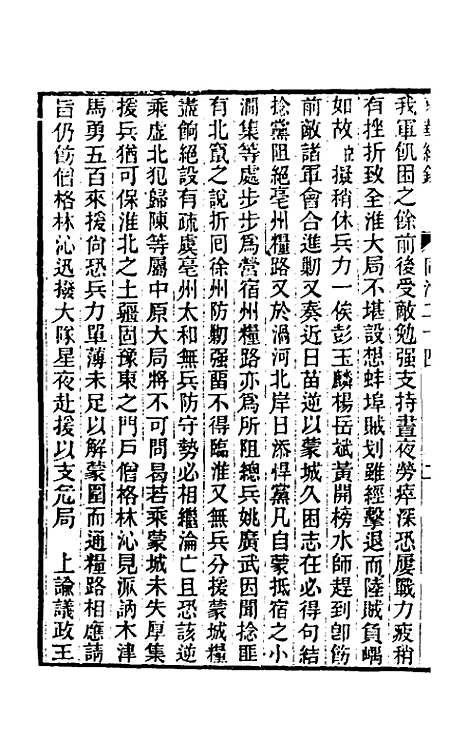 我軍飢困之餘前後受敵勉强支持晝夜勞瘁深恐屢戰力疲稍
有挫折致全淮大局不堪設想蚌埠賊划雖經擊退而陸賊負嵎
如故擬稍休兵力一俟彭玉麟楊岳斌黃開榜水師趕到卽飭
前敵諸軍會合進勦又奏近日苗逆以蒙城久困志在必得句結
捻黨阻絕亳州糧路又於渦河北岸日添悍黨凡自蒙抵宿之小
澗集等處步步爲營宿州糧路亦爲所阻總兵姚廣武因聞捻匪
有北竄之說折囘徐州防勦强留不得臨淮又無兵分援蒙城糧
盡餉絕設有疏虞亳州太和無兵防守勢必相繼淪亡且恐該逆
乘虛北犯歸陳等屬中原大局將不可問曷若乘蒙城未失厚集
援兵猶可保淮北之土疆固豫東之門戶僧格林沁見派訥木津
馬勇五百來援尙恐兵力單薄未足以解蒙圍而通糧路相應請
旨仍飭僧格林沁迅撥大隊星夜赴援以支危局　上諭議政王